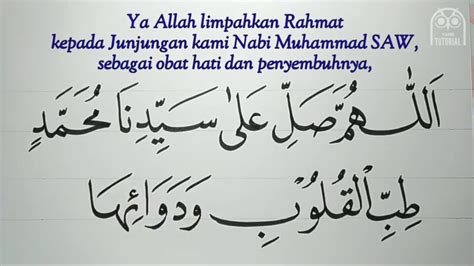 Ya Allah limpahkan Rahmat
kepada Junjungan kami Nabi Muhammad SAW,
sebagai obat hati dan penyembuhnya,
اَللّٰهُمَّ صَلِّ عَلٰى سَيِّدِنَا مُحَمَّدٍ
طِبِّ الْقُلُوْبِ وَدَوَائِهَا
TUTORIAL